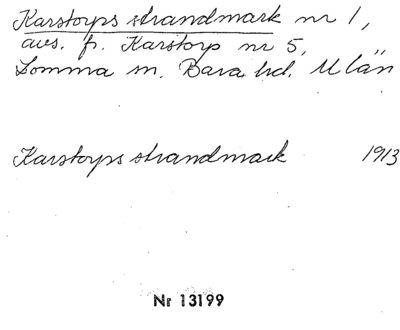 Karstorps strandmark nr 1,
avs. fr. Karstorp nr 5,
Lomma sn. Bara hd. M län
Karstorps strandmark 1913
Nr 13199